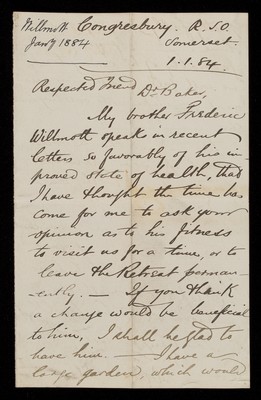 Willmott Congresbury. R.S.O.
Jany 1884 Somerset.
1.1.84.
Respected Friend
Dr Baker,
My brother Frederic
Willmott speaks in recent
letters so favorably of his im-
proved state of health, that
I have thought the time has
come for me to ask your
opinion as to his fitness
to visit us for a time, or to
leave the Retreat perman-
-ently. — If you think
a change would be beneficial
to him, I shall be glad to
have him. — I have a
large garden, which would